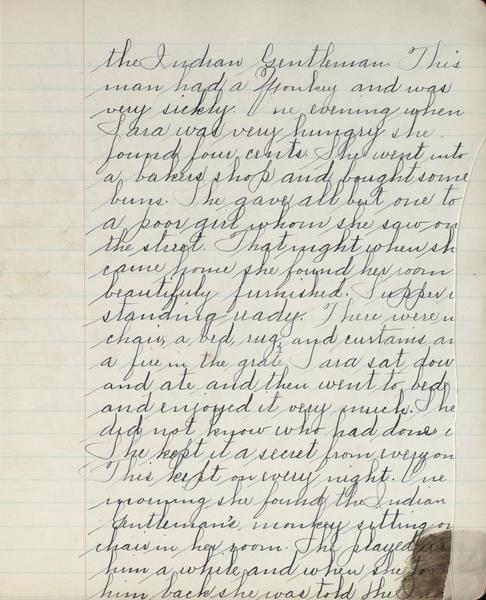 the Indian Gentleman. This
man had a Monkey and was
very sickly. One evening when
Sara was very hungry she
found four cents. She went into
a bakers shop and bought some
buns. She gave all but one to
a poor girl whom she saw on
the street. That night when sh
came home she found her room
beautifully furnished. Supper
standing ready. There were
chair, a bed, rug, and curtains an
a fire in the grate. Sara sat dow
and ate and then went to bed
and enjoyed it very much. She
did not know who had done
She kept it a secret from everyon
This kept on every night. One
morning she found the Indian
Gentleman's monkey sitting on
chair in her room. She played
him a while and when she
him back she was told the